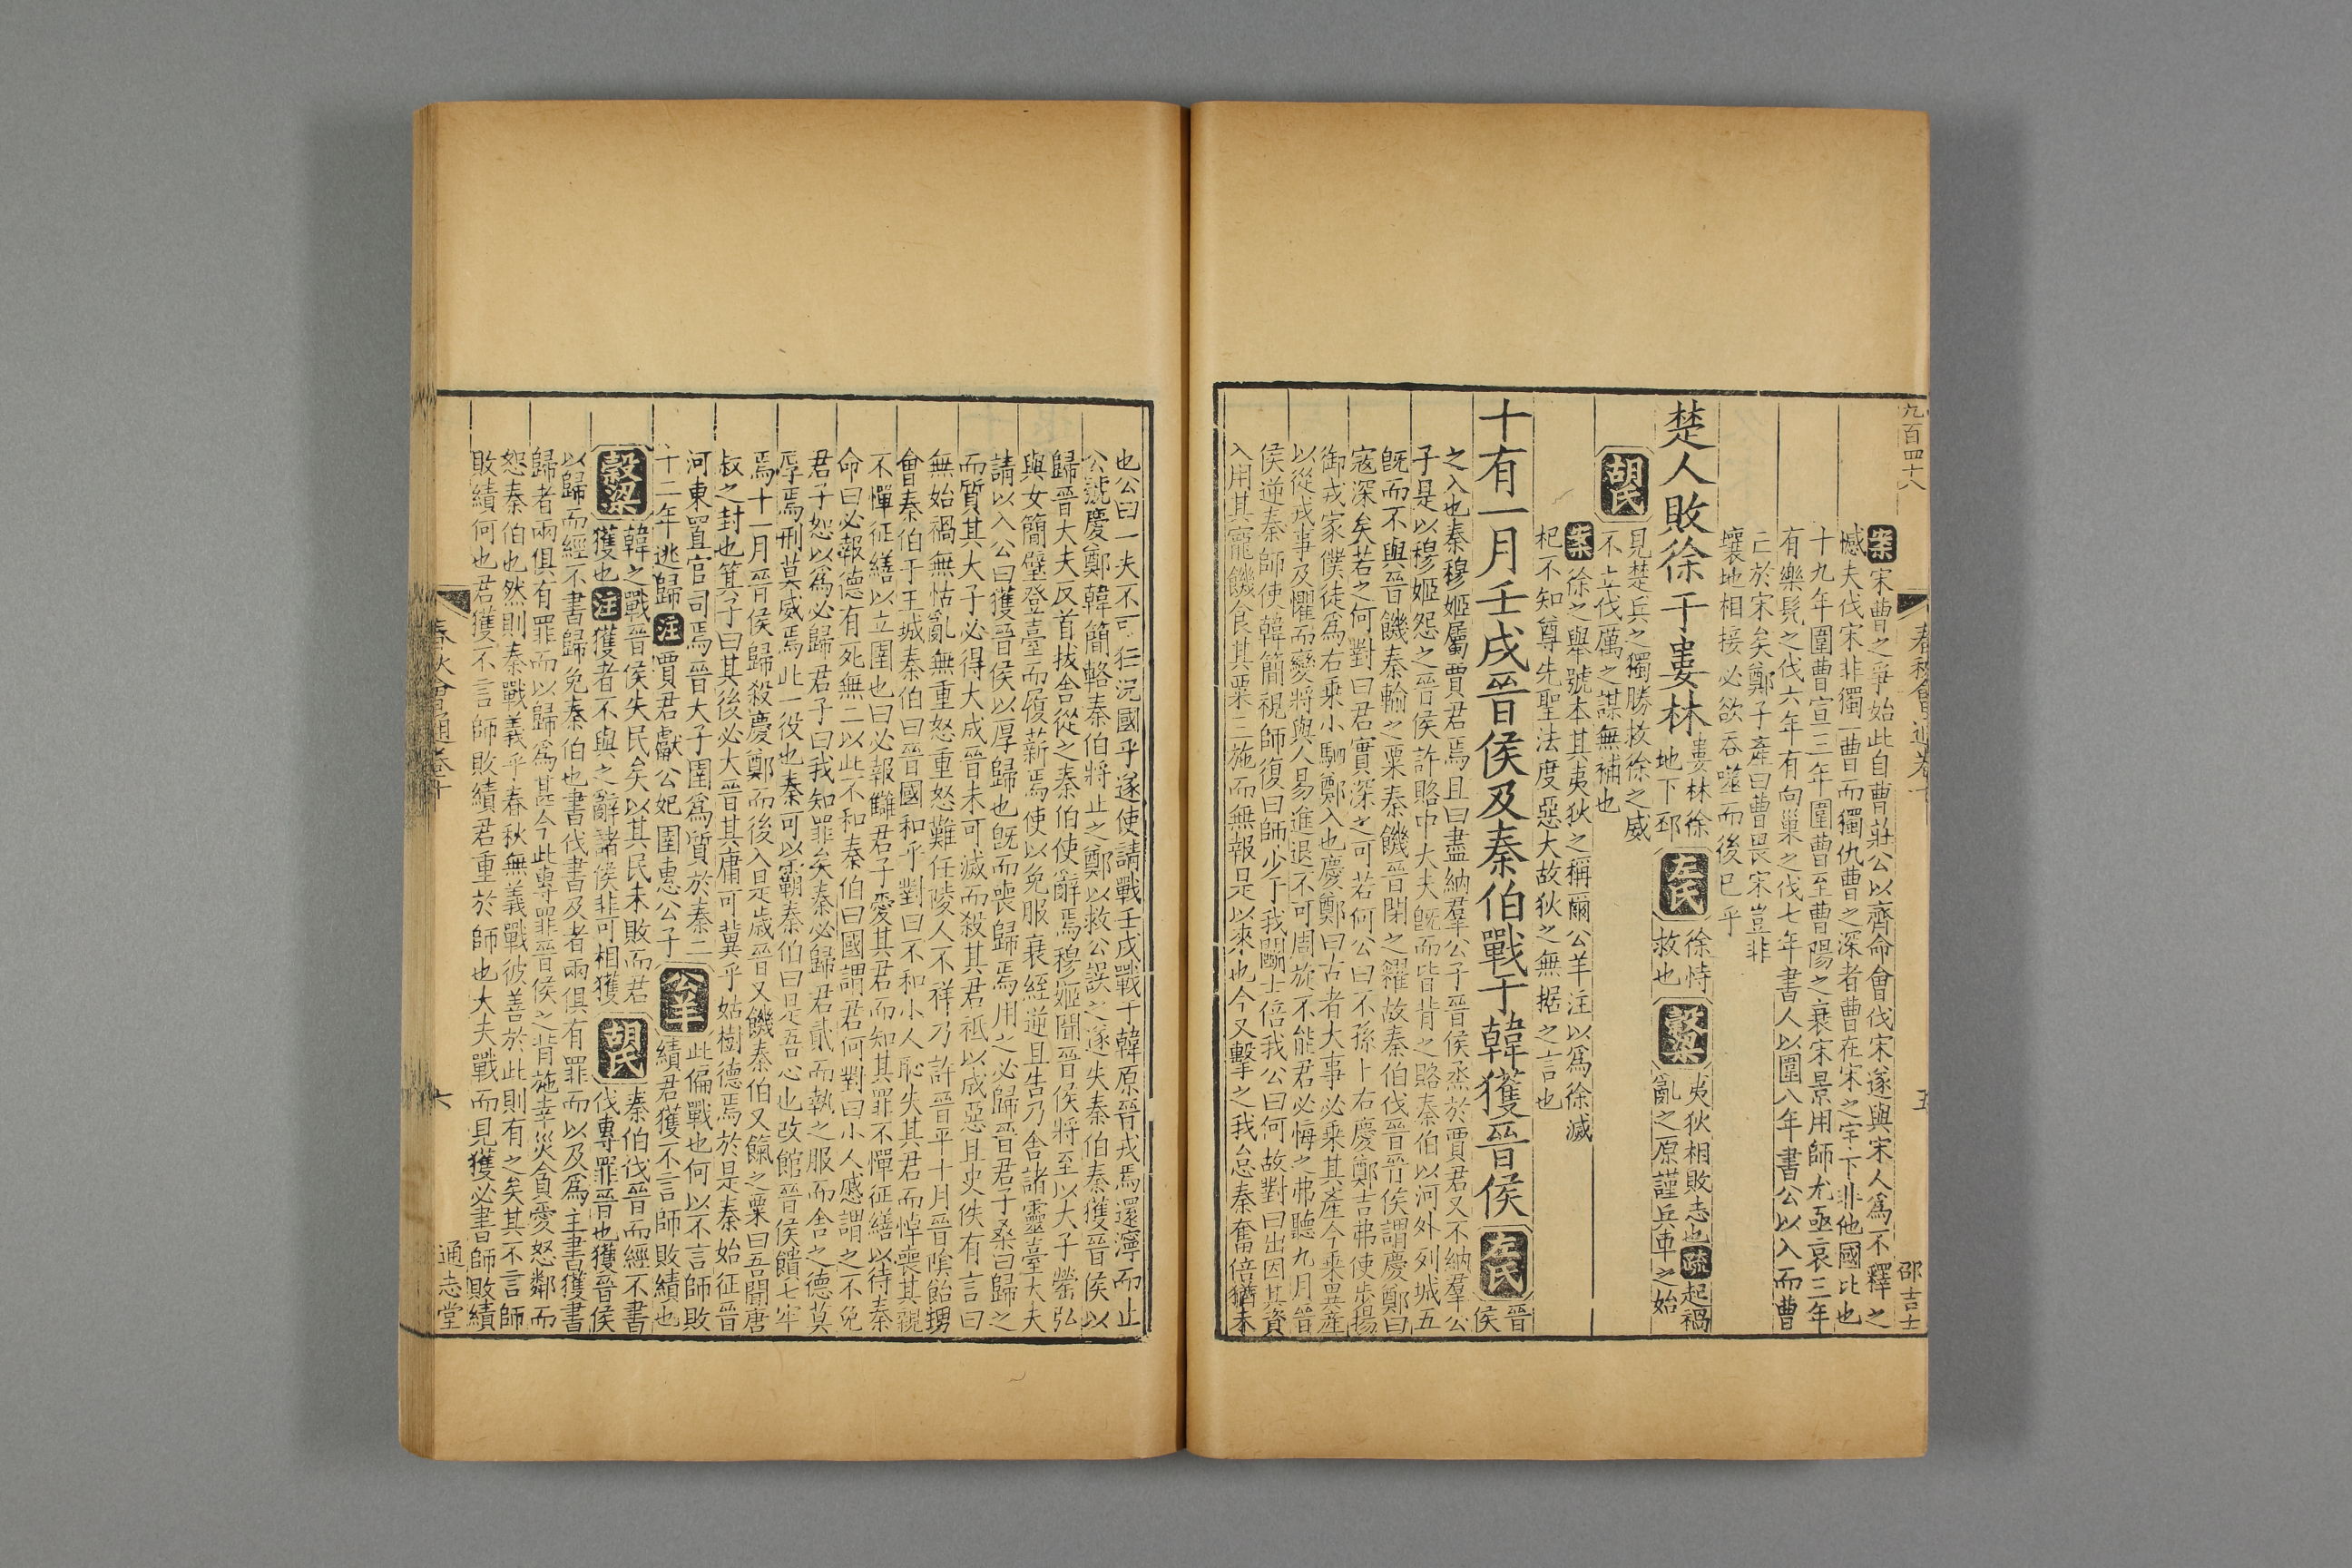 九百四十八
春秋會通卷十
五
邵吉士
案宋曹之爭始此自曹莊公以齊命會伐宋遂與宋人爲不釋之
憾夫伐宋非獨一曹而獨仇曹之深者曹在宋之宇下非他國比也
十九年圍曹宣三年圍曹至曹陽之衰宋景用師尤亟哀三年
有樂髠之伐六年有向巢之伐七年書人以圍八年書公以入而曹
亡於宋矣鄭子產曰曹畏宋豈非
壤地相接必欲吞噬而後已乎
楚人敗徐于婁林
婁林徐
地下邳
左氏
徐恃
救也
穀梁
夷狄相敗志也疏起禍
亂之原謹兵車之始
胡氏
見楚兵之獨勝救徐之威
不立伐厲之謀無補也
案徐之舉號本其夷狄之稱爾公羊注以爲徐滅
杞不知尊先聖法度惡大故狄之無据之言也
十有一月壬戌晉侯及秦伯戰于韓獲晉侯
左氏
晉
侯
之入也秦穆姬屬賈君焉且曰盡納羣公子晉侯烝於賈君又不納羣公
子是以穆姬怨之晉侯許賂中大夫旣而皆背之賂秦伯以河外列城五
旣而不與晉饑秦輸之粟秦饑晉閉之糴故秦伯伐晉晉侯謂慶鄭曰
寇深矣若之何對曰君實深之可若何公曰不孫卜右慶鄭吉弗使步揚
御戎家僕徒爲右乘小駟鄭入也慶鄭曰古者大事必乘其產今乘異產
以從戎事及懼而變將與人易進退不可周旋不能君必悔之弗聽九月晉
侯逆秦師使韓簡視師復曰師少于我鬬士倍我公曰何故對曰出因其資
入用其寵饑食其粟三施而無報是以來也今又擊之我怠秦奮倍猶未
也公曰一夫不可狃況國乎遂使請戰壬戌戰于韓原晉戎馬還濘而止
公號慶鄭韓簡輅秦伯將止之鄭以救公誤之遂失秦伯秦獲晉侯以
歸晉大夫反首拔舍從之秦伯使辭焉穆姬聞晉侯將至以大子罃弘
與女簡璧登臺而履薪焉使以免服衰絰逆且告乃舍諸靈臺大夫
請以入公曰獲晉侯以厚歸也旣而喪歸焉用之必歸晉君子桑曰歸之
而質其大子必得大成晉未可滅而殺其君祇以成惡且史佚有言曰
無始禍無怙亂無重怒重怒難任陵人不祥乃許晉平十月晉陰飴甥
會秦伯于王城秦伯曰晉國和乎對曰不和小人恥失其君而悼喪其親
不憚征繕以立圉也曰必報讎君子愛其君而知其罪不憚征繕以待秦
命曰必報德有死無二以此不和秦伯曰國謂君何對曰小人慼謂之不免
君子恕以爲必歸君子曰我知罪矣秦必歸君貳而執之服而舍之德莫
厚焉刑莫威焉此一役也秦可以霸秦伯曰是吾心也改館晉侯饋七牢
焉十一月晉侯歸殺慶鄭而後入是歲晉又饑秦伯又餼之粟曰吾聞唐
叔之封也箕子曰其後必大晉其庸可冀乎姑樹德焉於是秦始征晉
河東置官司焉晉大子圉爲質於秦二
十二年逃歸注賈君獻公妃圉惠公子
公羊
此偏戰也何以不言師敗
績君獲不言師敗績也
穀梁
韓之戰晉侯失民矣以其民未敗而君
獲也注獲者不與之辭諸侯非可相獲
胡氏
秦伯伐晉而經不書
伐專罪晉也獲晉侯
以歸而經不書歸免秦伯也書伐書及者兩俱有罪而以及爲主書獲書
歸者兩俱有罪而以歸爲甚今此專罪晉侯之背施幸災貪愛怒鄰而
恕秦伯也然則秦戰義乎春秋無義戰彼善於此則有之矣其不言師
敗績何也君獲不言師敗績君重於師也大夫戰而見獲必書師敗績
春秋會通卷十
六
通志堂